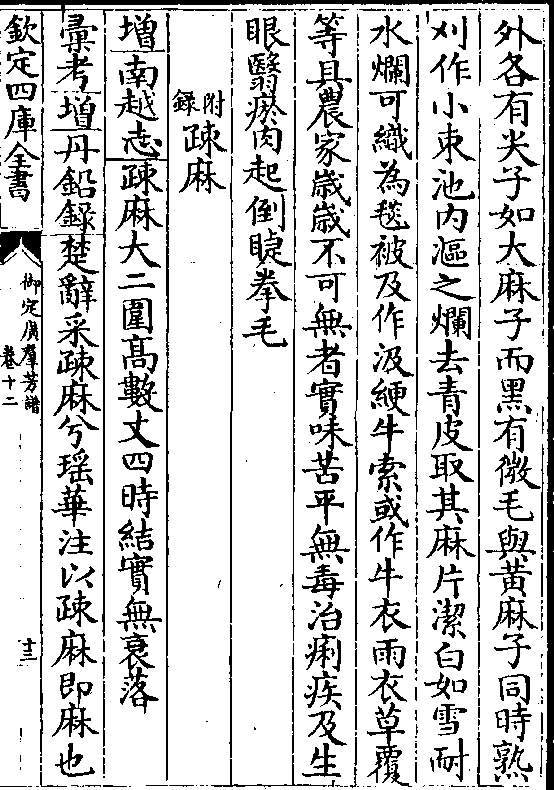 外各有尖子如大麻子而黒有微毛與黄麻子同時熟
刈作小束池内漚之爛去青皮取其麻片潔白如雪耐
水爛可織為毯被及作汲綆牛索或作牛衣雨衣草覆
等具農家歳歳不可無者實味苦平無毒治痢疾及生
眼翳瘀肉起倒睫拳毛
附録疎麻
増南越志疎麻大二圍髙數丈四時結實無衰落
彚考増丹鉛録楚辭采疎麻兮瑶華注以疎麻即麻也
欽定四庫全書
御定廣羣芳譜
卷十二
十三